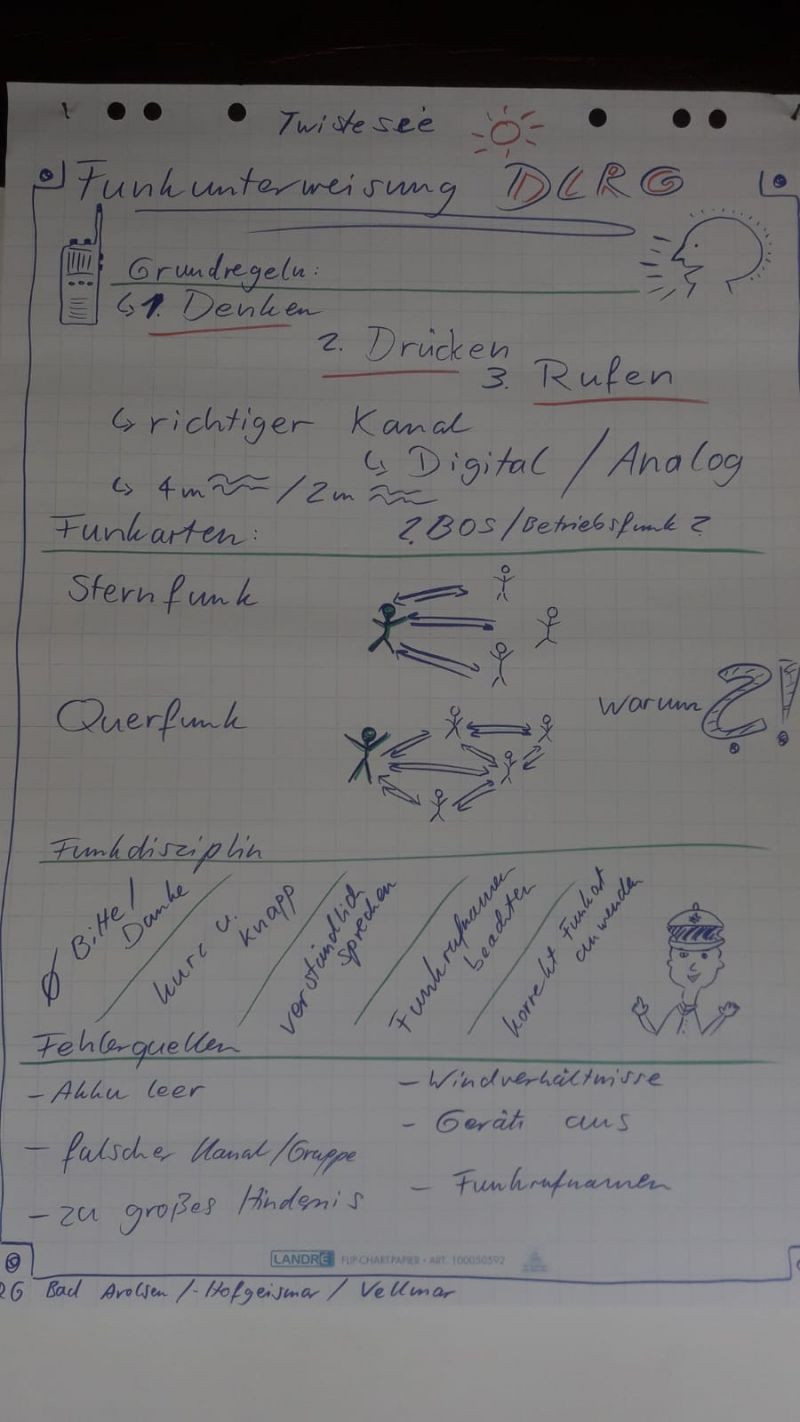 Twistesee
Funkunterweisung DLRG
Grundregeln:
↳ 1. Denken
2. Drücken
3. Rufen
↳ richtiger Kanal
↳ Digital / Analog
↳ 4m / 2m
Funkarten: ? BOS/Betriebsfunk ?
Sternfunk
Querfunk
warum ?!
Funkdisziplin
Ø Bitte/
Danke
kurz u.
knapp
verständlich
sprechen
Funkrufnamen
beachten
korrekt Funkat
anwenden
Fehlerquellen
- Akku leer
- falscher Kanal/Gruppe
- zu großes Hindernis
- Windverhältnisse
- Gerät aus
- Funkrufnamen
LANDRÉ FLIPCHARTPAPIER • ART. 100050592
RG Bad Arolsen / Hofgeismar / Vellmar